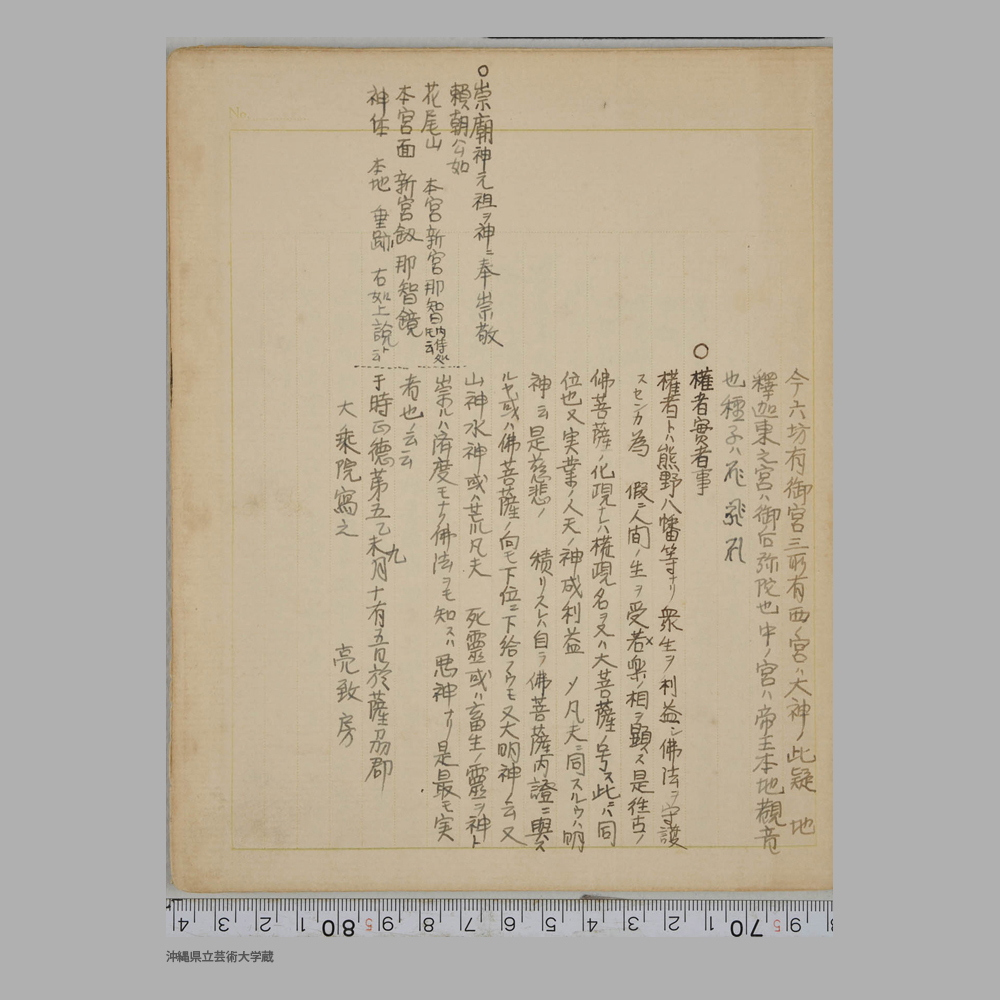 今六坊有御宮三所有西ノ宮ハ大神ノ此疑 地
釋迦東之宮ハ御后弥陀也中ノ宮ハ帝王本地觀音
也種子ハ
○權者實者事
權者トハ熊野八幡等ナリ衆生ヲ利益シ佛法ヲ守護
スセンカ為 假ニ人間ノ生ヲ受若樂ノ相ヲ顕ス是往古ノ
佛菩薩ノ化現ナレハ権現名ヲ又ハ大菩薩ノ号ス此ニハ同
位也又実業ノ人天ノ神成利益 メ凡夫ニ同スルウハ明
神ニ云是慈悲ノ 積リスレハ自ラ佛菩薩内證ニ與ス
ルヤ或ハ佛菩薩ノ向モ下位ニ下給フウモ又大明神ト云又
山神水神或ハ荒凡夫 死靈或ハ畜生ノ靈ヲ神ト
崇ルハ済度モナク佛法ヲモ知スハ悪神ナリ是最モ実
者也云云
于時正徳第五乙未九月十有五日於薩刕郡
大乘院寫之 亮致房
○崇廟神元祖ヲ神ニ奉崇敬
頼朝公如
花尾山 本宮新宮那智内侍処モ云
本宮面 新宮釼那智鏡
神体 本地 垂跡 右如上説ト云
No.
4 3 2 1 80 5 9 8 7 6 5 4 3 2 1 70 5 9 8
沖縄県立芸術大学蔵